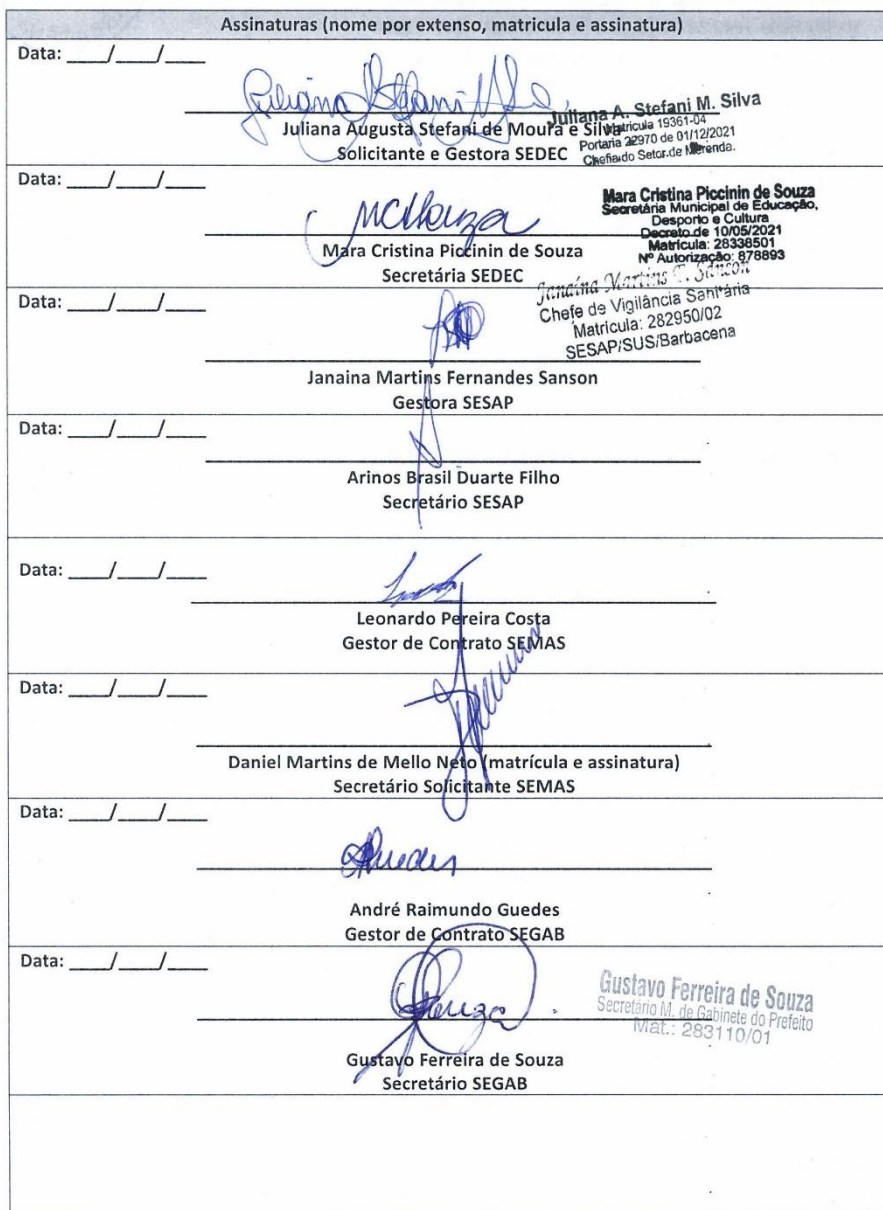 Assinaturas (nome por extenso, matricula e assinatura)
Data: ____/____/____
Juliana Stefani
Juliana Augusta Stefani de Moura e Silva
Solicitante e Gestora SEDEC
Juliana A. Stefani M. Silva
Matricula 19361-04
Portaria 22970 de 01/12/2021
Chefia do Setor de Merenda.
Data: ____/____/____
MCSouza
Mara Cristina Piccinin de Souza
Secretária SEDEC
Mara Cristina Piccinin de Souza
Secretária Municipal de Educação,
Desporto e Cultura
Decreto de 10/05/2021
Matrícula: 28338501
Nº Autorização: 878893
Data: ____/____/____
Janaína Martins F. Sanson
Chefe de Vigilância Sanitária
Matricula: 282950/02
SESAP/SUS/Barbacena
Janaina Martins Fernandes Sanson
Gestora SESAP
Data: ____/____/____
Arinos Brasil Duarte Filho
Secretário SESAP
Data: ____/____/____
Leonardo Pereira Costa
Gestor de Contrato SEMAS
Data: ____/____/____
Daniel Martins de Mello Neto (matrícula e assinatura)
Secretário Solicitante SEMAS
Data: ____/____/____
Guedes
André Raimundo Guedes
Gestor de Contrato SEGAB
Data: ____/____/____
Souza
Gustavo Ferreira de Souza
Secretário SEGAB
Gustavo Ferreira de Souza
Secretário M. de Gabinete do Prefeito
Mat.: 283110/01